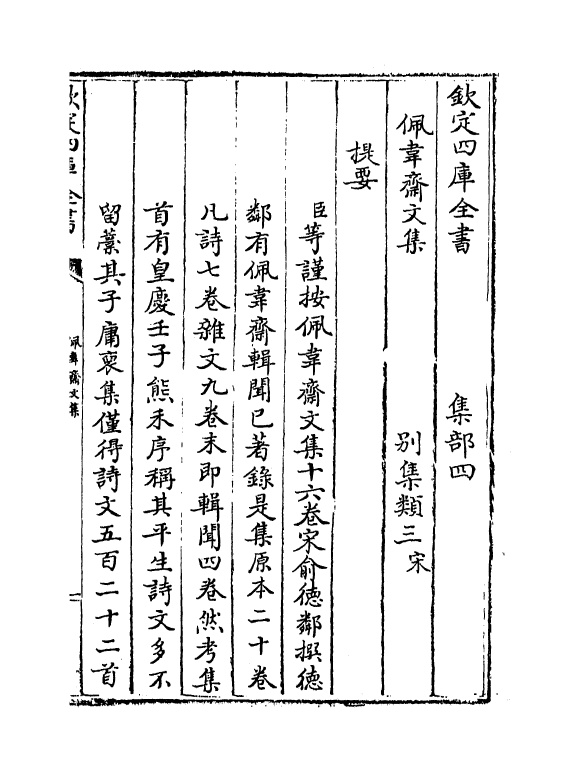 欽定四庫全書　集部四
佩韋齋文集　別集類三宋
提要
臣等謹按佩韋齋文集十六卷宋俞徳鄰撰徳
鄰有佩韋齋輯聞已著錄是集原本二十卷
凡詩七卷雜文九卷末即輯聞四卷然考集
首有皇慶壬子熊禾序稱其平生詩文多不
留藁其子庸裒集僅得詩文五百二十二首
欽定四庫全書
佩韋齋文集
一